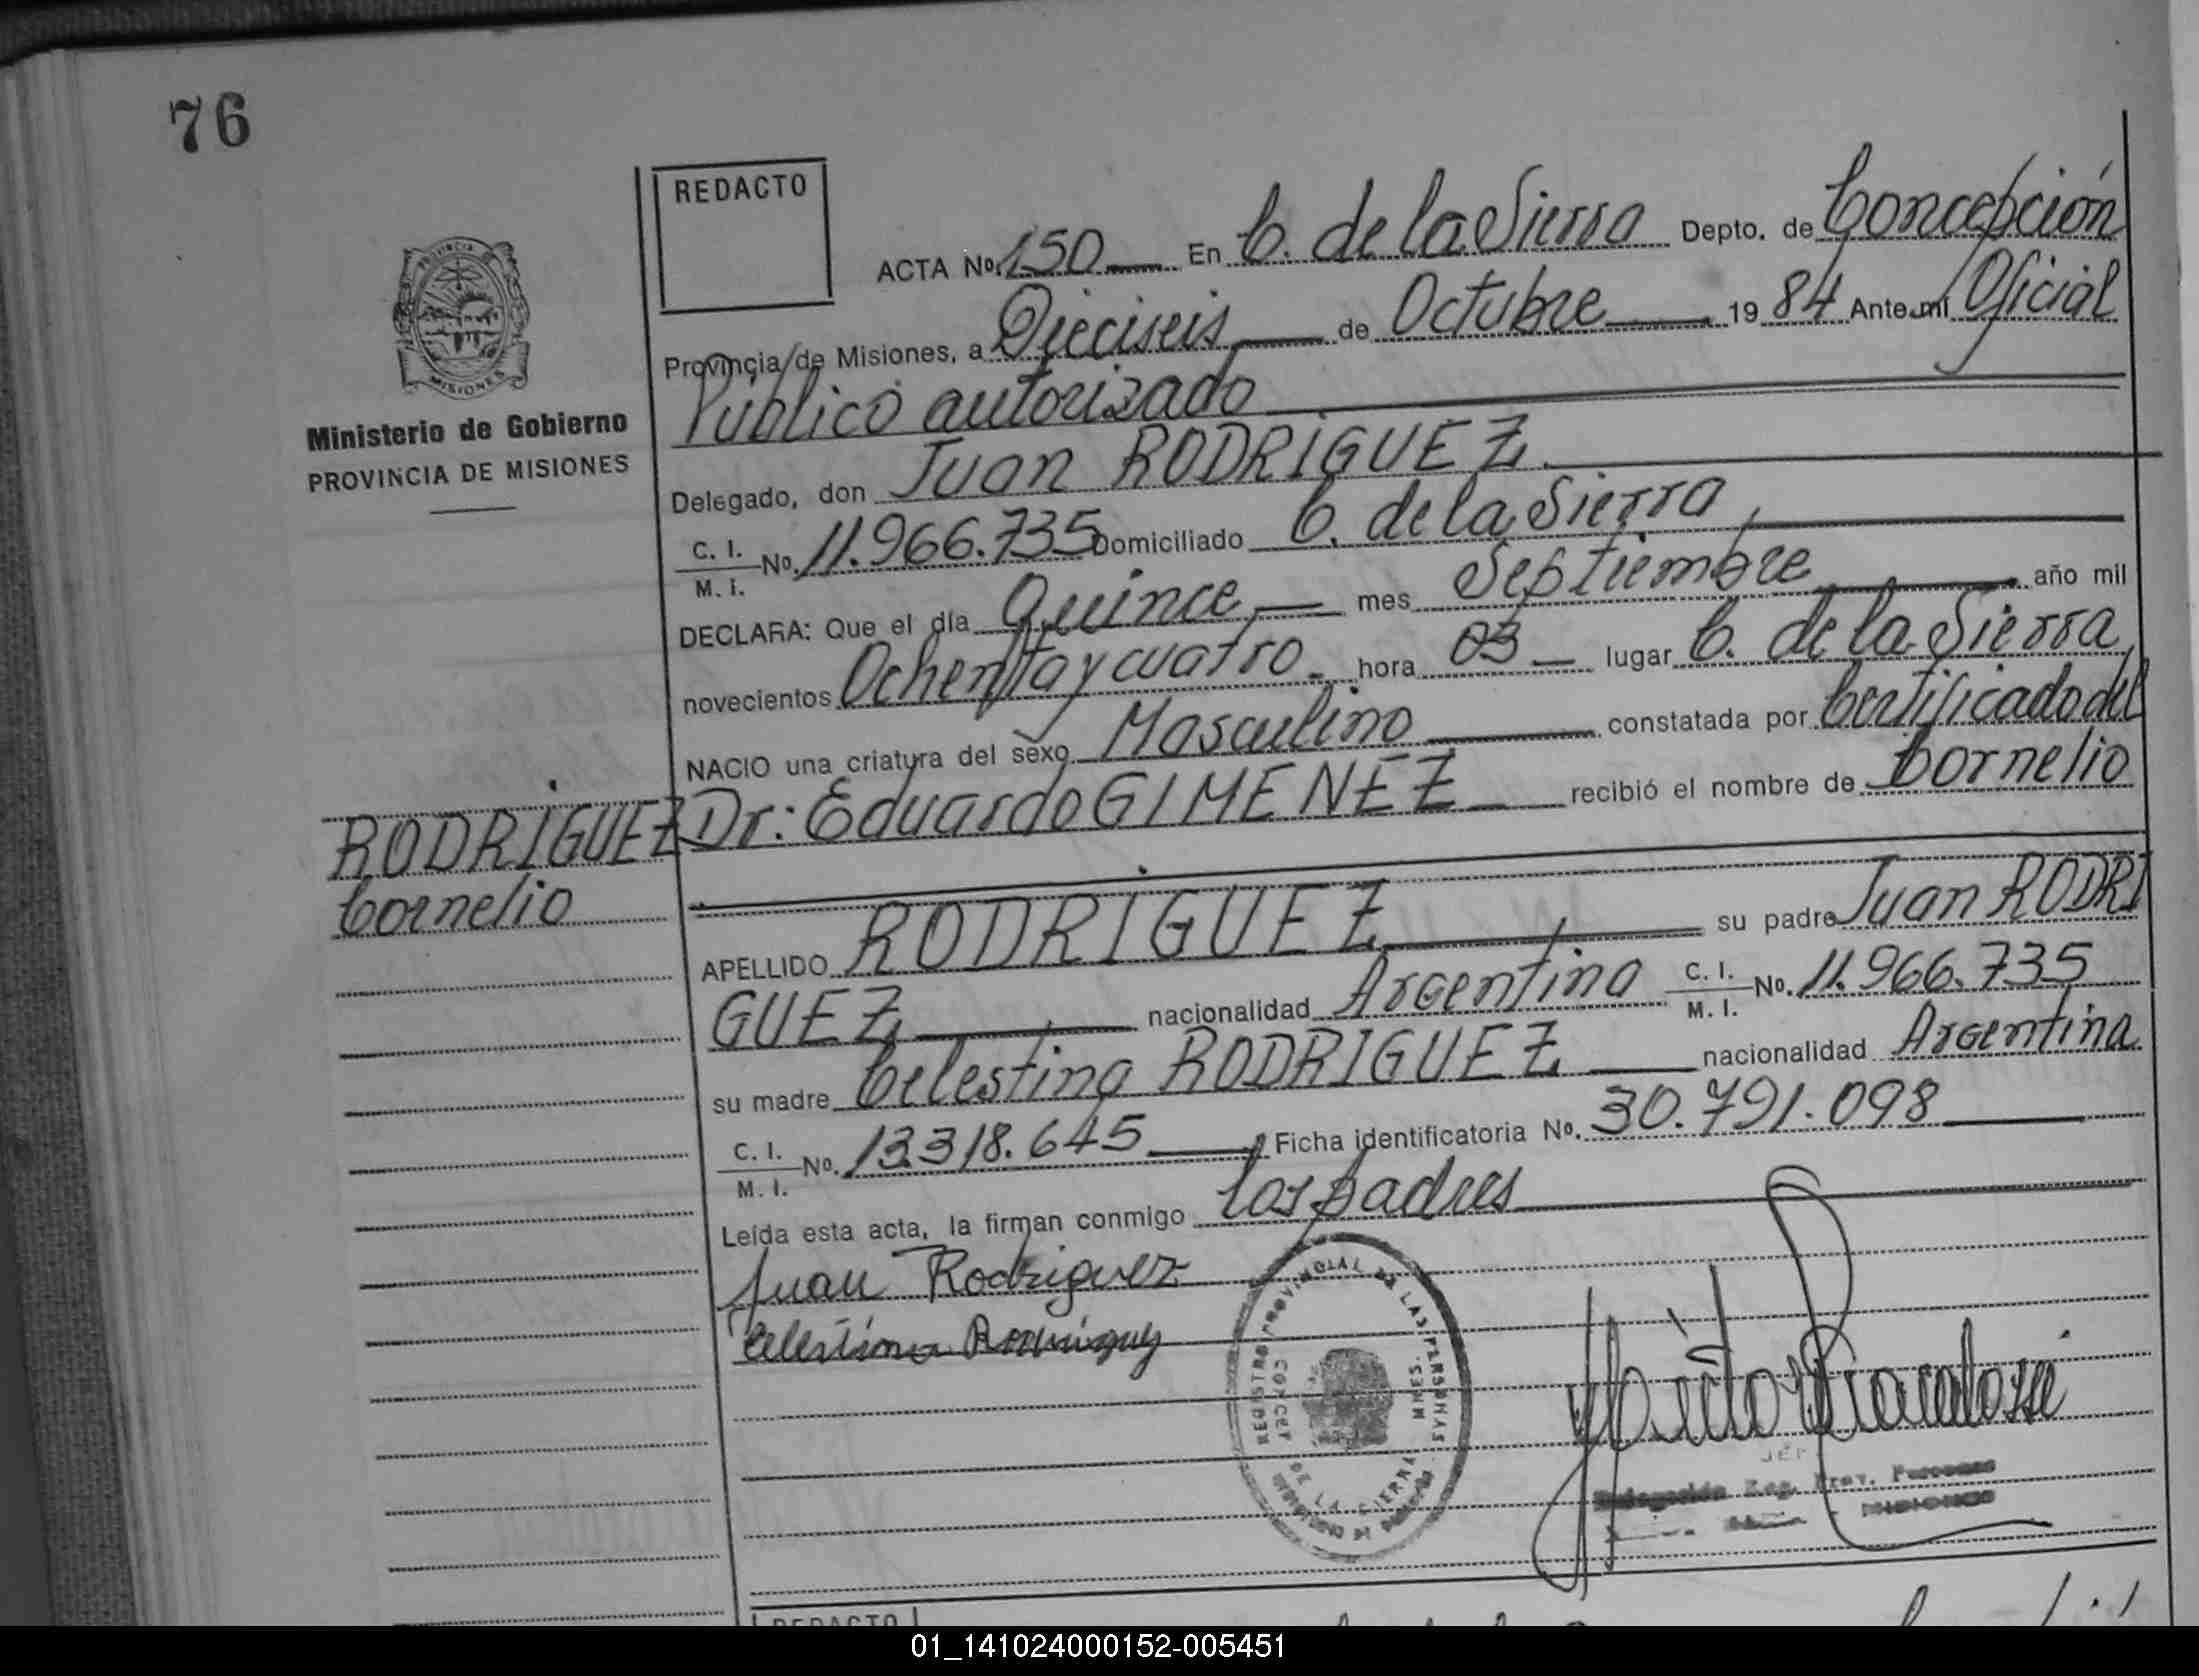 76
REDACTO
ACTA Nº. 150 En C. de la Sierra Depto. de Concepción
Provincia de Misiones, a Dieciseis de Octubre 1984 Ante mí Oficial
Público autorizado
PROVINCIA
MISIONES
Ministerio de Gobierno
PROVINCIA DE MISIONES
Delegado, don Juan RODRIGUEZ
C. I. M. I. Nº. 11.966.735 Domiciliado C. de la Sierra,
DECLARA: Que el día Quince, mes Septiembre año mil
novecientos Ochenta y cuatro hora 03 lugar C. de la Sierra,
NACIO una criatura del sexo Masculino constatada por Certificado del
Dr: Eduardo GIMENEZ recibió el nombre de Cornelio
RODRIGUEZ
Cornelio
APELLIDO RODRIGUEZ, su padre Juan RODRI
GUEZ, nacionalidad Argentina C. I. M. I. Nº. 11.966.735
su madre Celestina RODRIGUEZ nacionalidad Argentina
C. I. M. I. Nº. 13.318.645 Ficha identificatoria Nº. 30.791.098
Leída esta acta, la firman conmigo los padres
Juan Rodriguez
Celestina Rodriguez
REGISTRO PROVINCIAL DE LAS PERSONAS
CONCEP. DE LA SIERRA MNES.
JEF
Delegación Reg. Prov. Personas
MISIONES
REDACTO
01_141024000152-005451